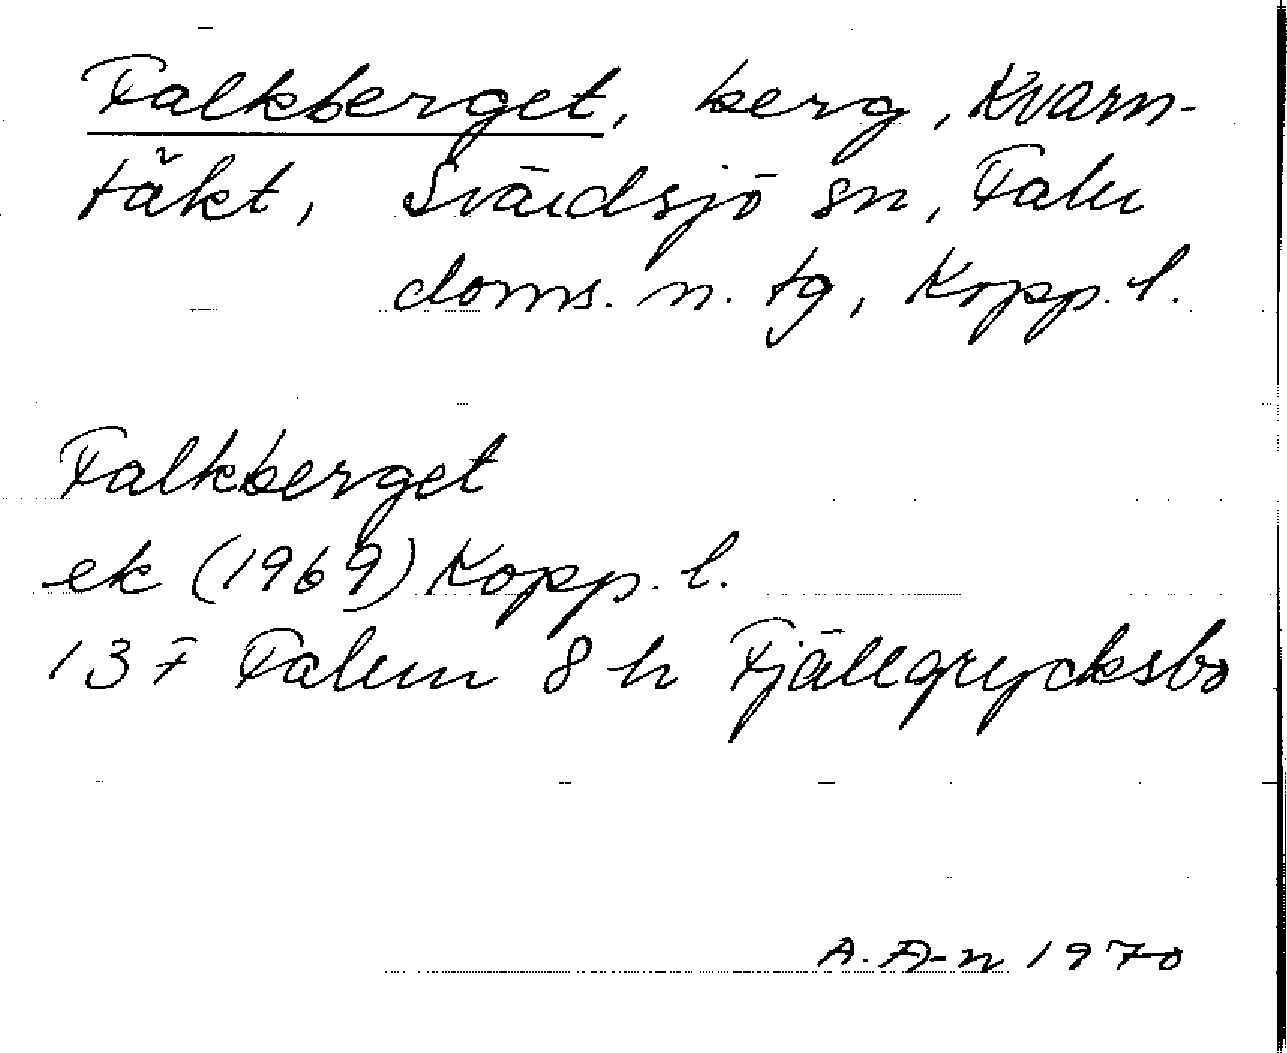 Falkberget, berg, Kvarn-
täkt, Svärdsjö sn, Falu
doms. n. tg, Kopp. l.
Falkberget
ek (1969) Kopp. l.
13 F Falun 8 h Fjällgrycksbo
A. A-n 1970